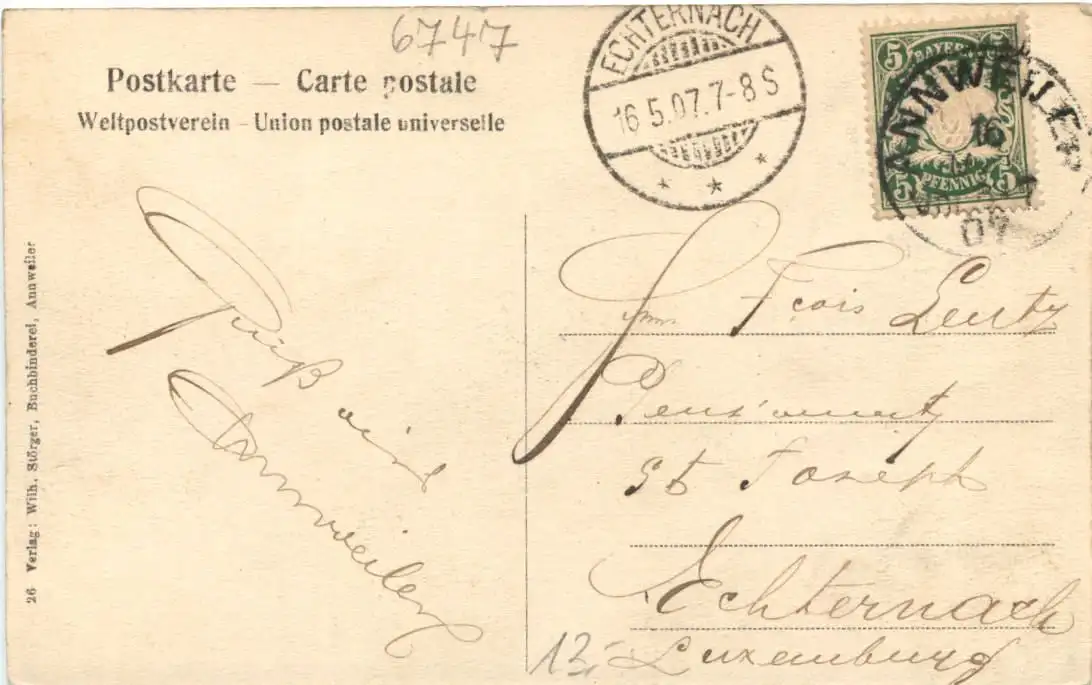 6747
Postkarte — Carte postale
Weltpostverein - Union postale universelle
ECHTERNACH
16.5.07.7-8 S
BAYERN
5 5
5 PFENNIG 5
ANNWEILER
16
07
Gruß aus
Annweiler
Fçois Leutz
Pensionnat
St Joseph
Echternach
Luxemburg
13,-
26 Verlag: Wilh. Störger, Buchbinderei, Annweiler